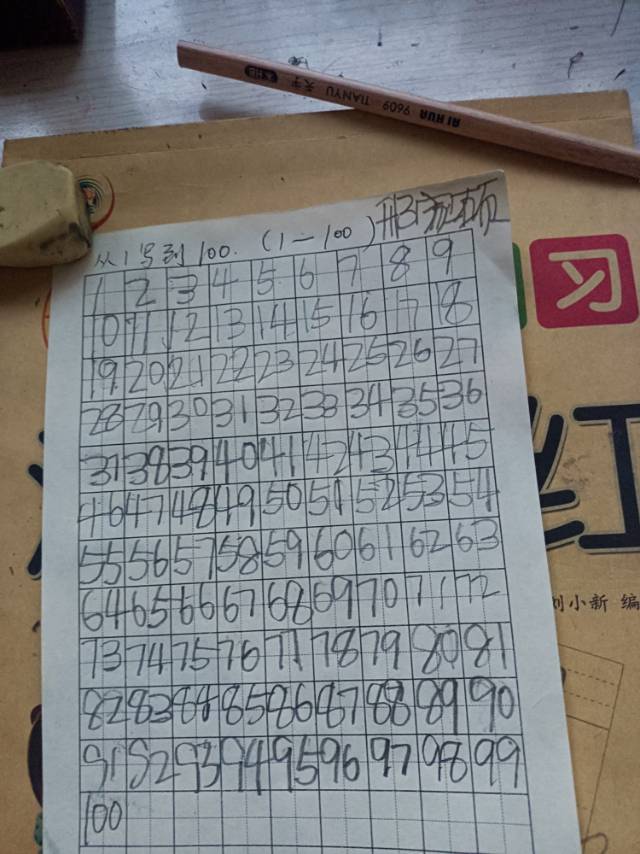 AI HUA TIANYU 天宇 9609 HB
从1写到100.（1—100）
1 2 3 4 5 6 7 8 9
10 11 12 13 14 15 16 17 18
19 20 21 22 23 24 25 26 27
28 29 30 31 32 33 34 35 36
37 38 39 40 41 42 43 44 45
46 47 48 49 50 51 52 53 54
55 56 57 58 59 60 61 62 63
64 65 66 67 68 69 70 71 72
73 74 75 76 77 78 79 80 81
82 83 84 85 86 87 88 89 90
91 92 93 94 95 96 97 98 99
100
习
红
刘小新 编